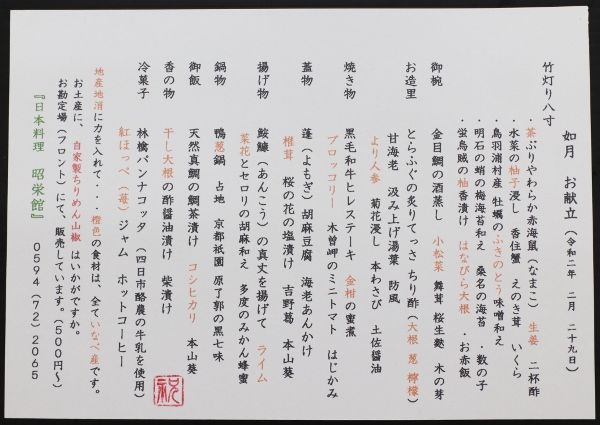 如月　お献立（令和二年　二月　二十九日）
竹灯り八寸
・茶ぶりやわらか赤海鼠（なまこ）　生姜　二杯酢
・水菜の柚子浸し　香住蟹　えのき茸　いくら
・鳥羽浦村産　牡蠣のふきのとう味噌和え
・明石の蛸の梅海苔和え　桑名の海苔　・数の子
・蛍烏賊の柚香漬け　はなびら大根　・お赤飯
御椀　金目鯛の酒蒸し　小松菜　舞茸　桜生麩　木の芽
お造里　とらふぐの炙りてっさ　ちり酢（大根　葱　檸檬）
甘海老　汲み上げ湯葉　防風
より人参　菊花浸し　本わさび　土佐醤油
焼き物　黒毛和牛ヒレステーキ　金柑の蜜煮
ブロッコリー　木曽岬のミニトマト　はじかみ
蓋物　蓬（よもぎ）胡麻豆腐　海老あんかけ
椎茸　桜の花の塩漬け　吉野葛　本山葵
揚げ物　鮟鱇（あんこう）の真丈を揚げて　ライム
菜花とセロリの胡麻和え　多度のみかん蜂蜜
鍋物　鴨葱鍋　占地　京都祇園　原了郭の黒七味
御飯　天然真鯛の鯛茶漬け　コシヒカリ　本山葵
香の物　干し大根の酢醤油漬け　柴漬け
冷菓子　林檎パンナコッタ　（四日市酪農の牛乳を使用）
紅ほっぺ（苺）ジャム　ホットコーヒー
地産地消に力を入れて・・・橙色の食材は、全ていなべ産です。
お土産に、自家製ちりめん山椒　はいかがですか。
お勘定場（フロント）にて、販売しています。（500円～）
『日本料理　昭栄館』　0594（72）2065